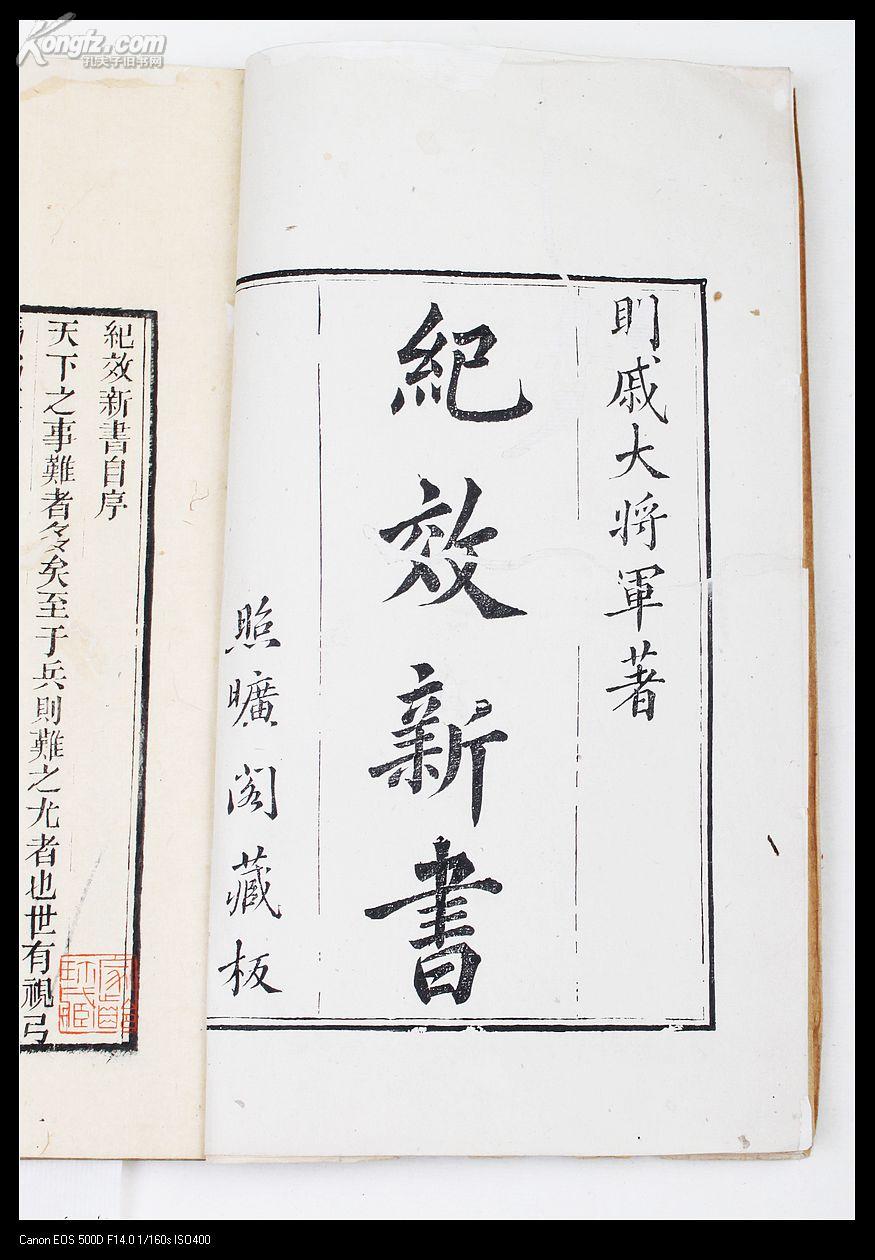 Kongfz.com
孔夫子旧书网
明戚大将軍著
紀效新書
照曠閣藏板
紀效新書自序
天下之事難者多矣至于兵則難之尤者也世有視弓
Canon EOS 500D F14.0 1/160s ISO400